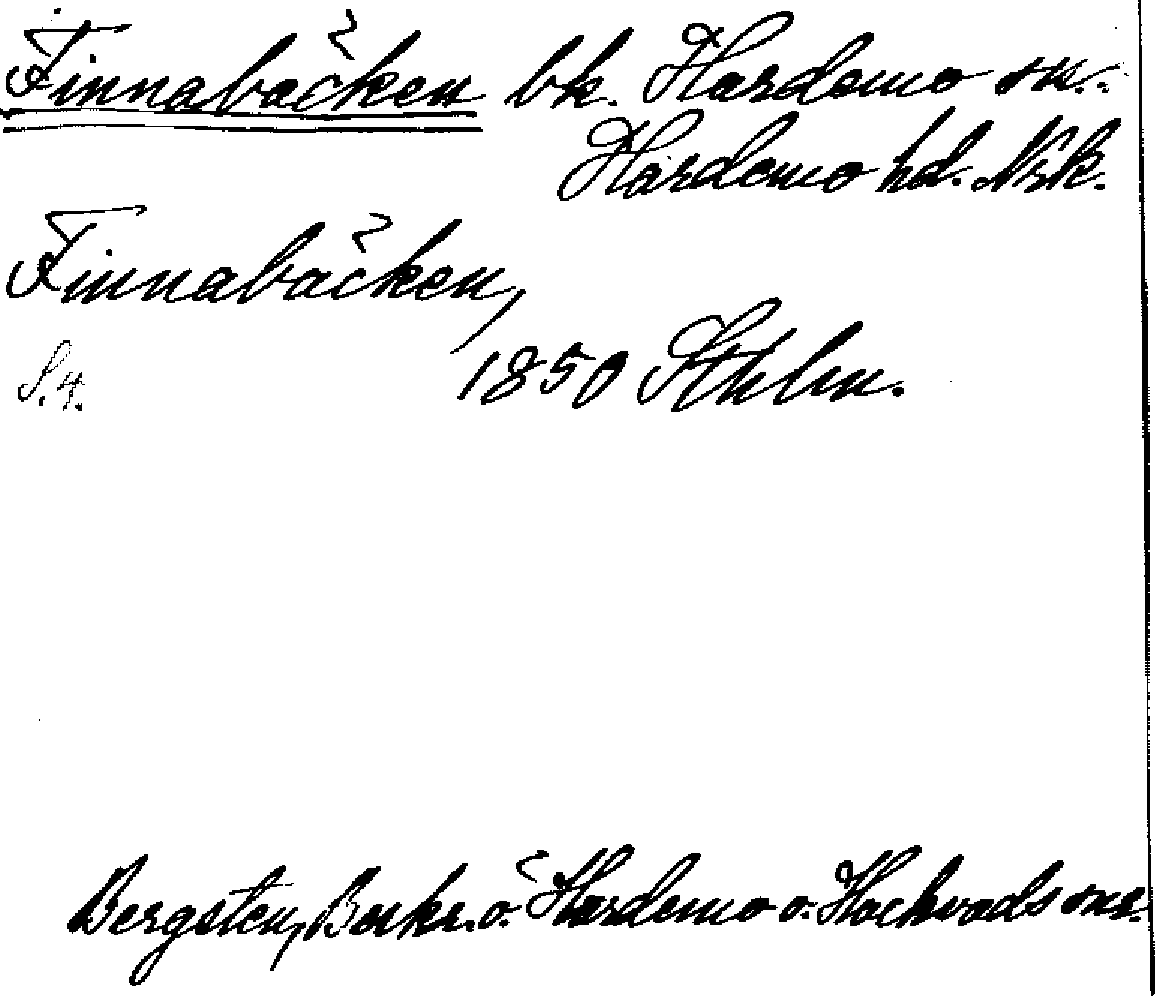 Finnabäcken bk. Hardemo sn.
Hardemo hd. Nrk.
Finnabäcken,
S.4. 1850 Sthlm.
Bergsten, Beskr. ö. Hardemo o. Hackvads snr.